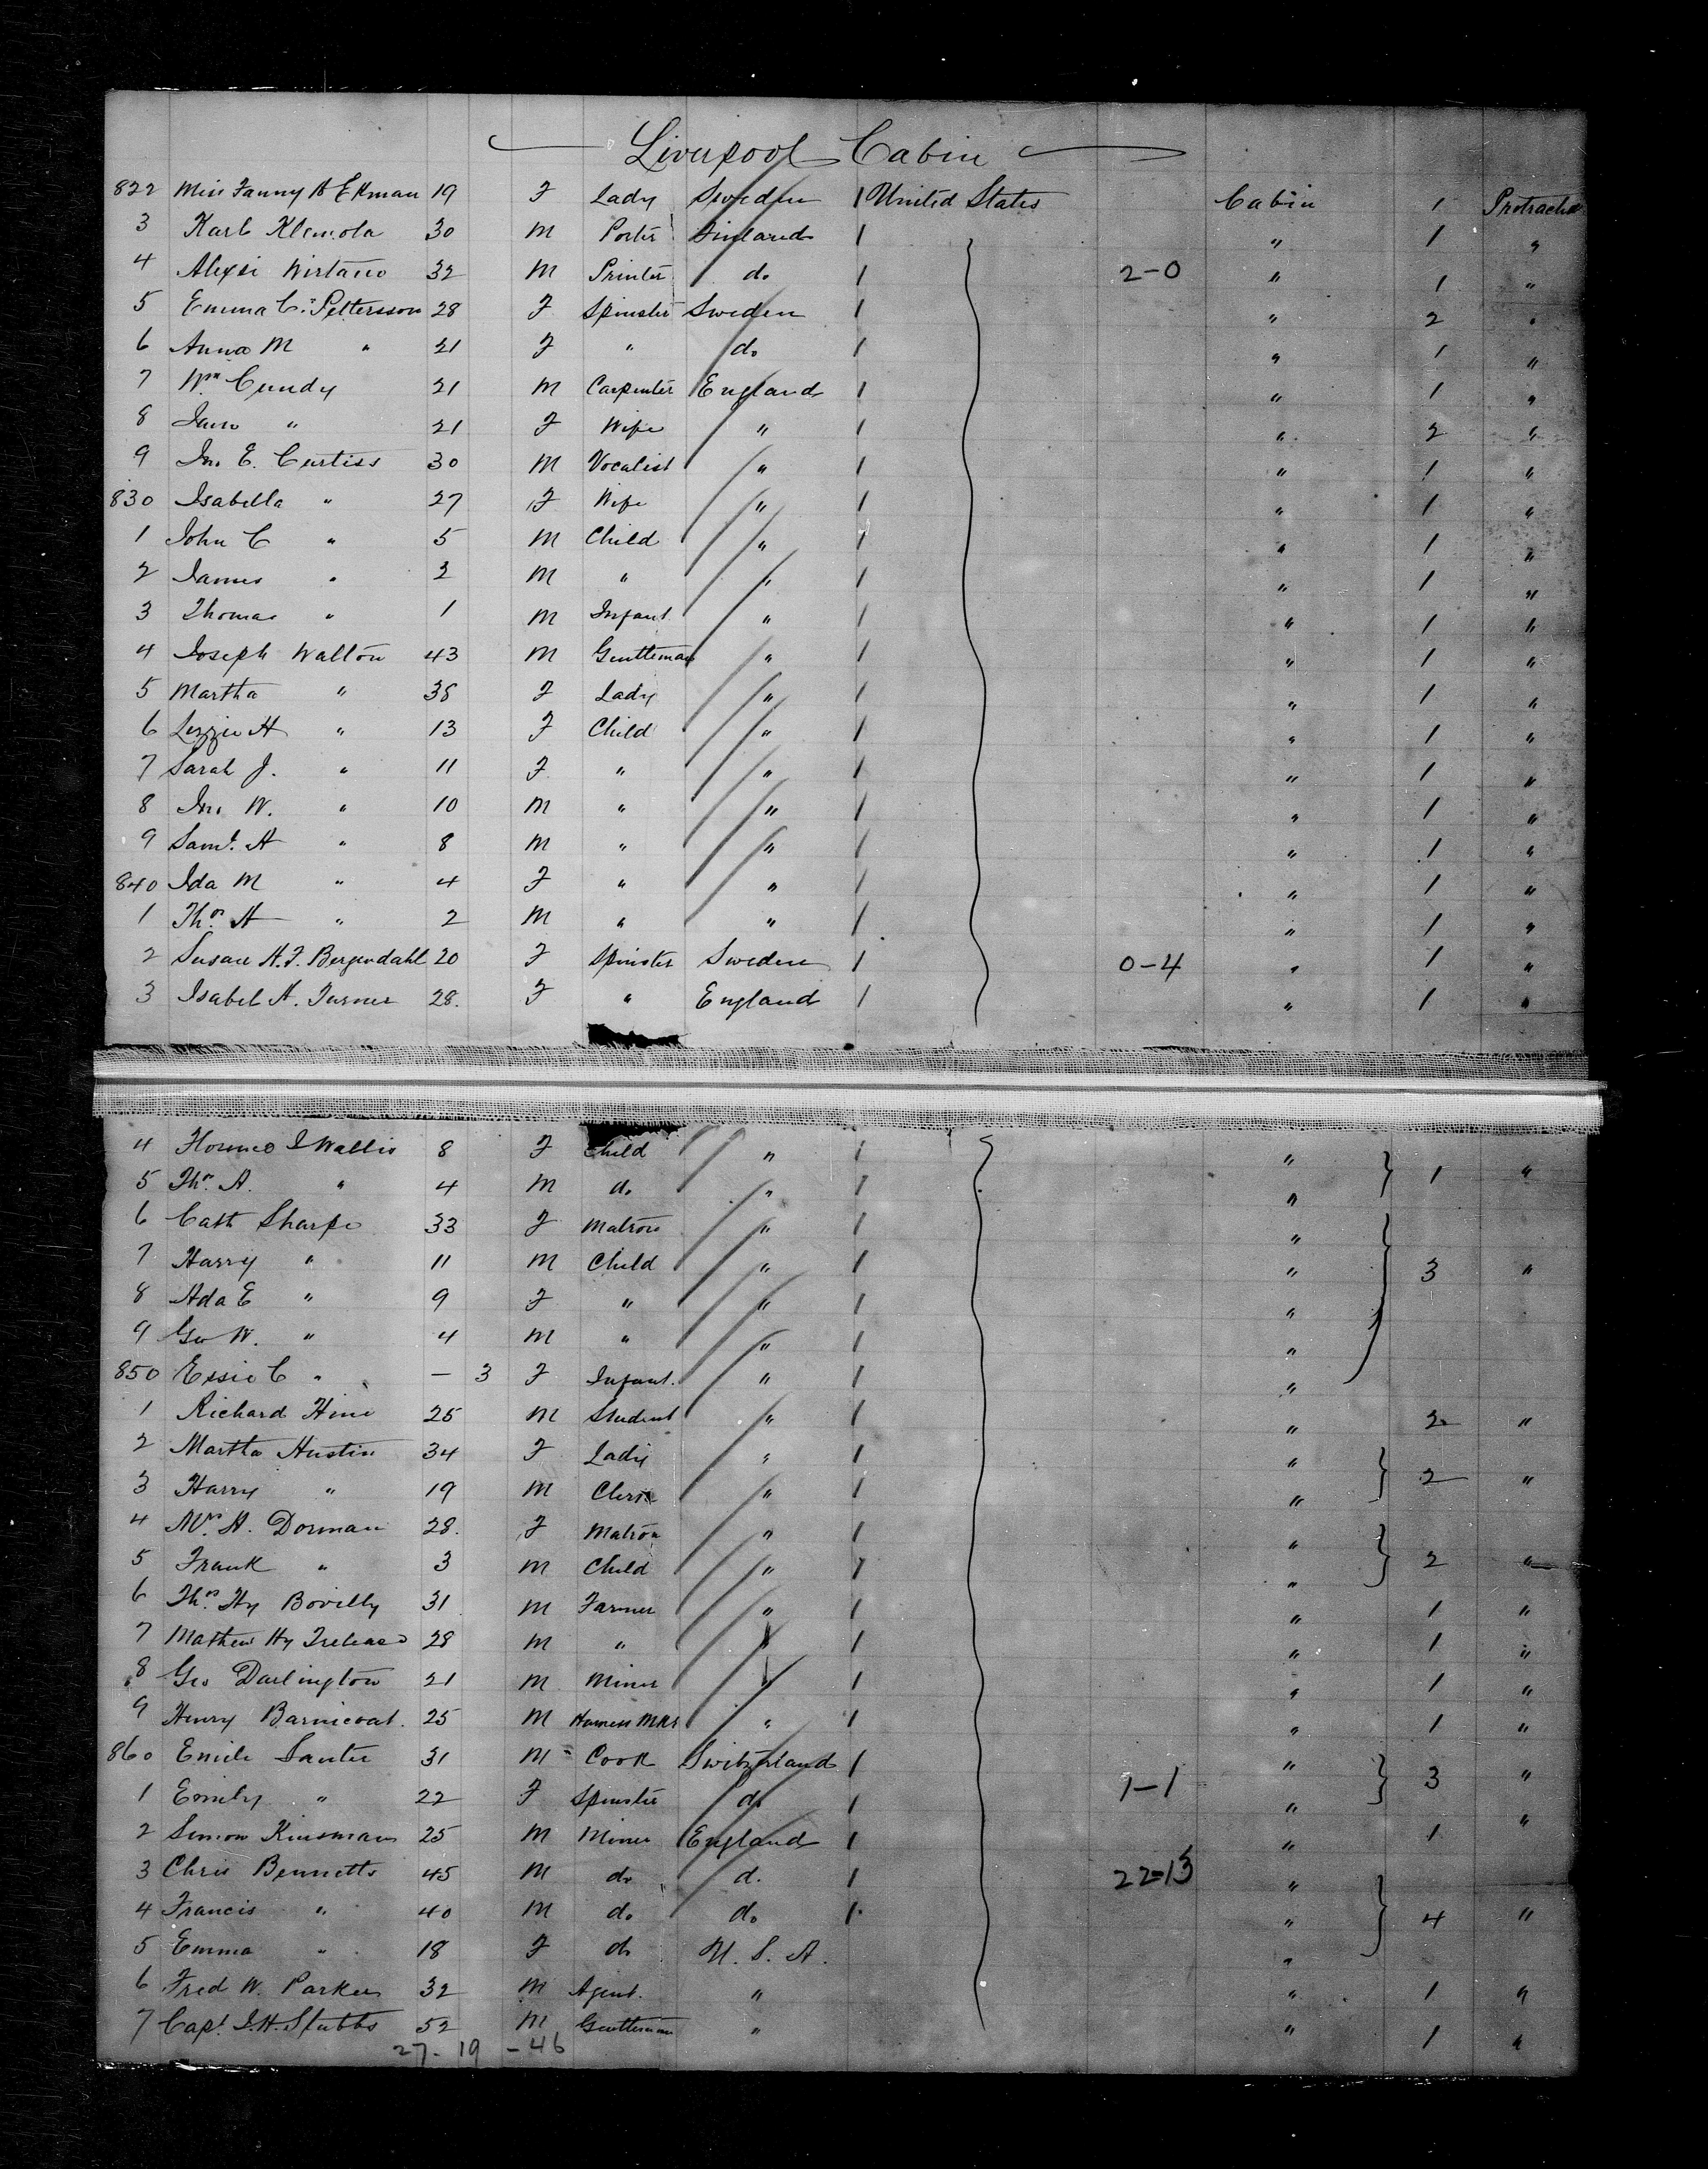 Liverpool Cabin
822 Miss Fanny A Ekman 19 F Lady Sweden 1 United States Cabin 1 Protracted
3 Karl Klemola 30 M Porter Finland 1 " 1 "
4 Alexsi Wirtano 32 M Printer do 1 2-0 " 1 "
5 Emma C. Pettersson 28 F Spinster Sweden 1 " 2 "
6 Anna M " 21 F " do 1 " 1 "
7 Wm Cundy 21 M Carpenter England 1 " 1 "
8 Jane " 21 F Wife " 1 " 2 "
9 Jno E. Curtiss 30 M Vocalist " 1 " 1 "
830 Isabella " 27 F Wife " 1 " 1 "
1 John C " 5 M Child " 1 " 1 "
2 James " 3 M " " 1 " 1 "
3 Thomas " 1 M Infant " 1 " 1 "
4 Joseph Walton 43 M Gentleman " 1 " 1 "
5 Martha " 38 F Lady " 1 " 1 "
6 Lizzie H " 13 F Child " 1 " 1 "
7 Sarah J. " 11 F " " 1 " 1 "
8 Jno W. " 10 M " " 1 " 1 "
9 Saml. A " 8 M " " 1 " 1 "
840 Ida M " 4 F " " 1 " 1 "
1 Thos A " 2 M " " 1 " 1 "
2 Susan H. F. Bergendahl 20 F Spinster Sweden 1 0-4 " 1 "
3 Isabel A. Turner 28. F " England 1 " 1 "
4 Florence I Wallis 8 F Child " 1 " 1 "
5 Thos A. " 4 M do " 1 "
6 Cath Sharpe 33 F Matron " 1 "
7 Harry " 11 M Child " 1 " 3 "
8 Ada E " 9 F " " 1 "
9 Geo W. " 4 M " " 1 "
850 Essie C " — 3 F Infant. " 1 "
1 Richard Hine 25 M Student " 1 " 2 "
2 Martha Hustin 34 F Lady " 1 " 2 "
3 Harry " 19 M Clerk " 1 "
4 Mrs A. Dorman 28. F Matron " 1 " 2 "
5 Frank " 3 M Child " 1 "
6 Thos Hy Bovilly 31 M Farmer " 1 " 1 "
7 Mathew Hy 28 M " " 1 " 1 "
8 Geo Darlington 21 M Miner " 1 " 1 "
9 Henry Barnicoat. 25 M Harness Mkr " 1 " 1 "
860 Emile Sauter 31 M Cook Switzerland 1 " 3 "
1 Emily " 22 F Spinster do 1 1-1 "
2 Simon Kinsman 25 M Miner England 1 " 1 "
3 Chris Bennetts 45 M do d. 1 22-13 "
4 Francis " 40 M do do 1 " 4 "
5 Emma " 18 F do U. S. A. "
6 Fred W. Parker 32 M Agent. " " 1 "
7 Capt J. H. Stubbs 52 M Gentleman " " 1 "
27-19 -46